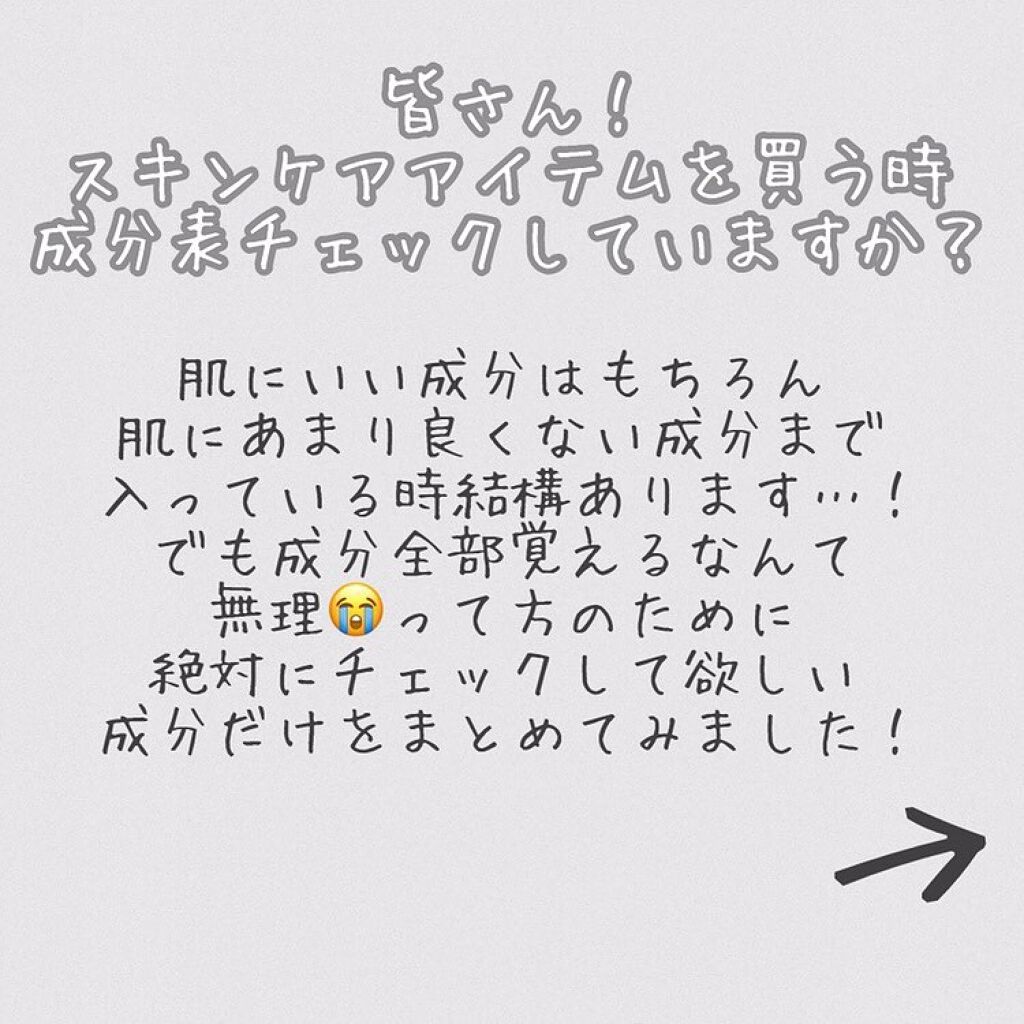 皆さん！
スキンケアアイテムを買う時
成分表チェックしていますか？
肌にいい成分はもちろん
肌にあまり良くない成分まで
入っている時結構あります…！
でも成分全部覚えるなんて
無理😭って方のために
絶対にチェックして欲しい
成分だけをまとめてみました！